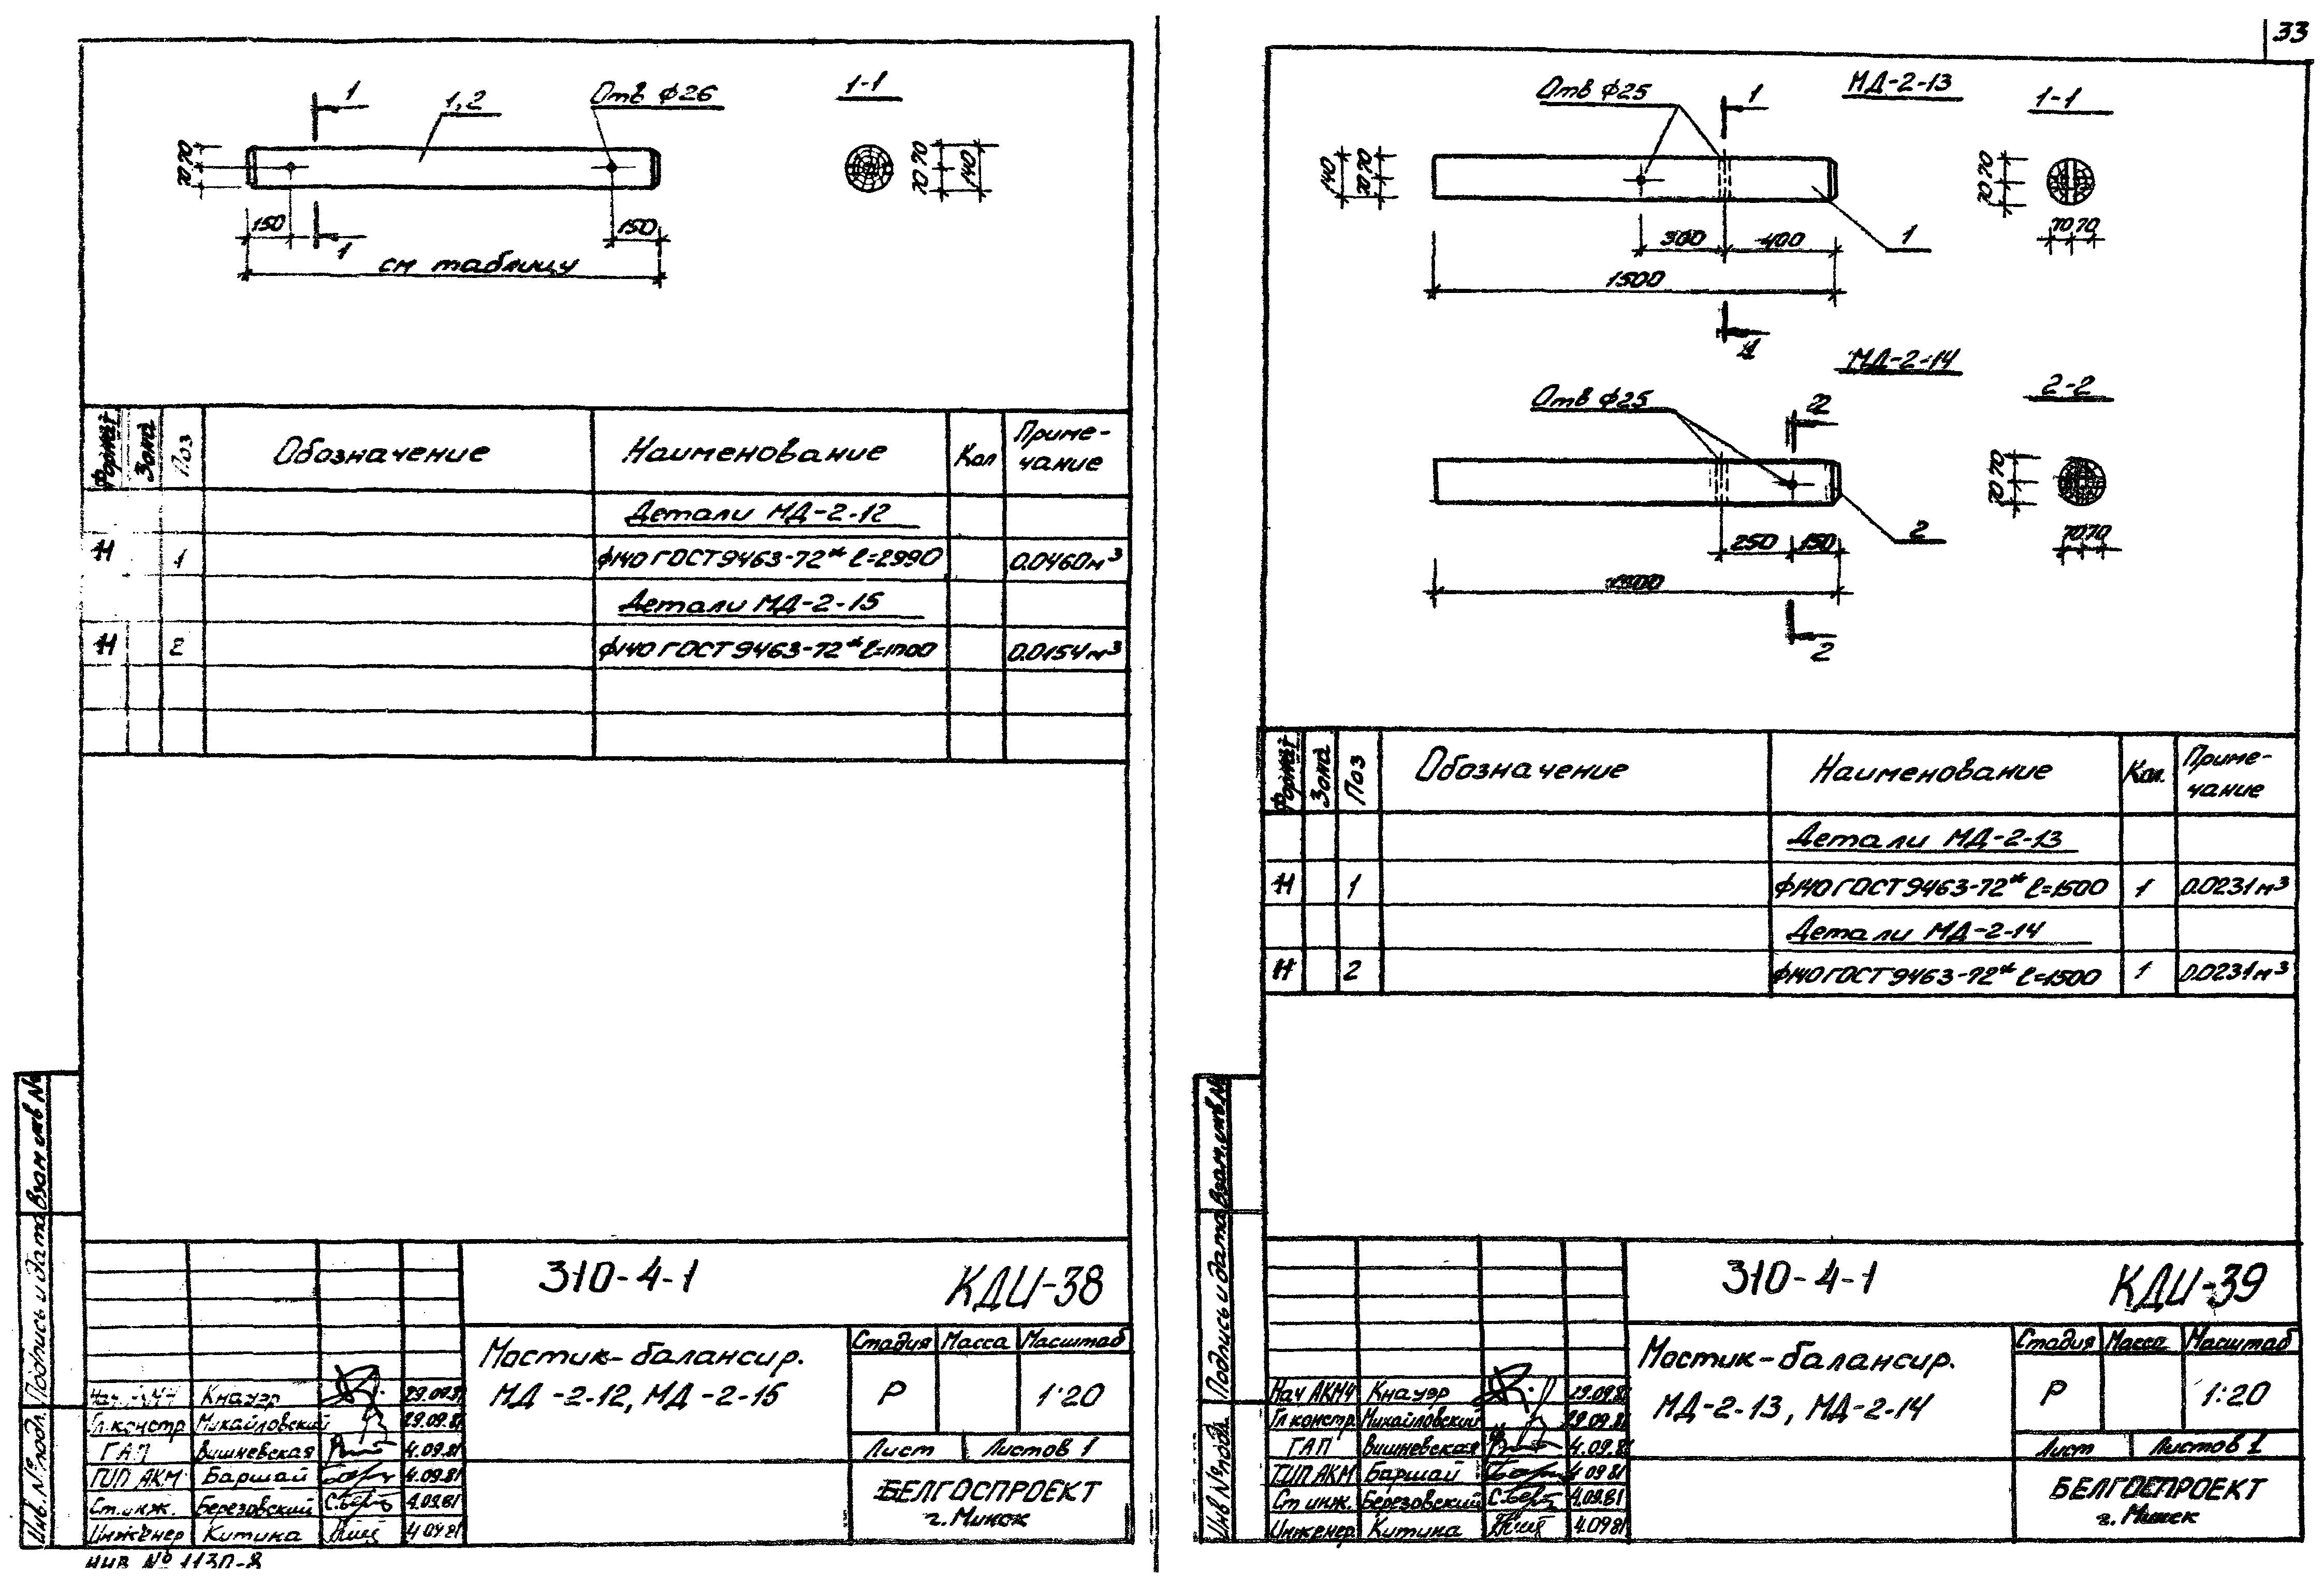 33
1
1,2
Отв ф26
1-1
70 70
70 70
140
150
150
1
см таблицу
Формат
Зона
Поз
Обозначение
Наименование
Кол
Приме-
чание
Детали МД-2-12
11
1
ф140 ГОСТ 9463-72* ℓ=2990
0.0460 м³
Детали МД-2-15
11
2
ф140 ГОСТ 9463-72* ℓ=1000
0.0154 м³
Взам инв №
Подпись и дата
Инв. № подл.
310-4-1
КДИ-38
Мостик-балансир.
МД-2-12, МД-2-15
Стадия Масса Масштаб
Р 1:20
Лист Листов 1
БЕЛГОСПРОЕКТ
г. Минск
Кнауэр 29.09.81
Гл.констр Михайловский 29.09.81
ГАП Вишневская 4.09.81
ГИП АКМ Баршай 4.09.81
Ст.инж. Березовский 4.09.81
Инженер Китина 4.09.81
инв № 1130-8
Отв ф25
1
МД-2-13
1-1
140
70 70
70 70
70 70
300
400
1
1500
1
МД-2-14
Отв ф25
2
2-2
70 70
70 70
250
150
2
1500
2
Формат
Зона
Поз
Обозначение
Наименование
Кол.
Приме-
чание
Детали МД-2-13
11
1
ф140 ГОСТ 9463-72* ℓ=1500
1
0.0231 м³
Детали МД-2-14
11
2
ф140 ГОСТ 9463-72* ℓ=1500
1
0.0231 м³
Взам. инв №
Подпись и дата
Инв № подл.
310-4-1
КДИ-39
Мостик-балансир.
МД-2-13, МД-2-14
Стадия Масса Масштаб
Р 1:20
Лист Листов 1
БЕЛГОСПРОЕКТ
г. Минск
Нач АКМ4 Кнауэр 29.09.81
Гл констр Михайловский 29.09.81
ГАП Вишневская 4.09.81
ГИП АКМ Баршай 4 09 81
Ст инж. Березовский 4.09.81
Инженер Китина 4.09 81